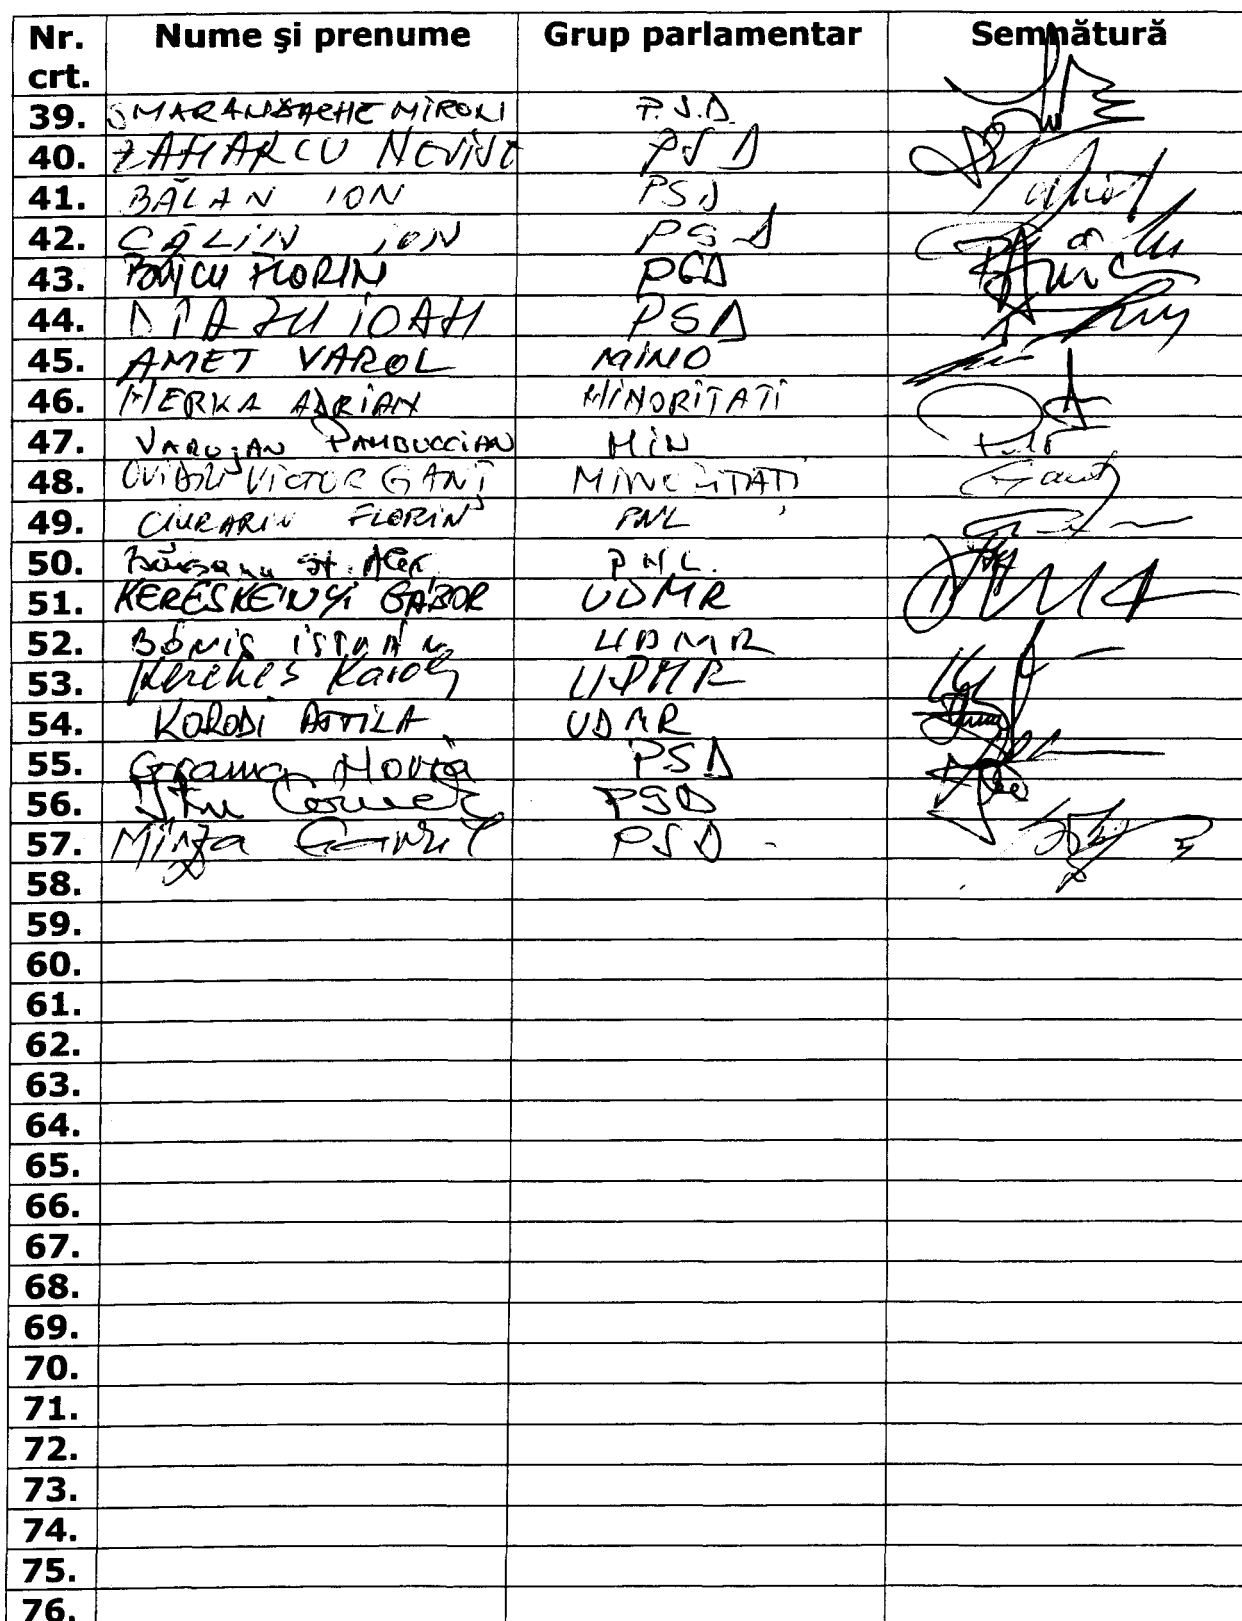 Nr. crt. Nume şi prenume Grup parlamentar Semnătură
39. SMARANDACHE MIRON P.S.D.
40. ZAHARCU NEVINE PSD
41. BĂLAN ION PSD
42. CĂLIN ION PSD
43. FLORIN PSD
44. PSD
45. AMET VAROL MINO
46. MERKA ADRIAN MINORITATI
47. VARUJAN PAMBUCCIAN MIN
48. OVIDIU VICTOR GANȚ MINORITATI
49. CIURARIU FLORIN PNL
50. PNL.
51. KERESKÉNYI GÁBOR UDMR
52. BÓNIS ISTVÁN UDMR
53. Kerekes Karoly UDMR
54. KORODI ATTILA UDMR
55. Grama Horia PSD
56. PSD
57. Mirza Gavril PSD
58.
59.
60.
61.
62.
63.
64.
65.
66.
67.
68.
69.
70.
71.
72.
73.
74.
75.
76.